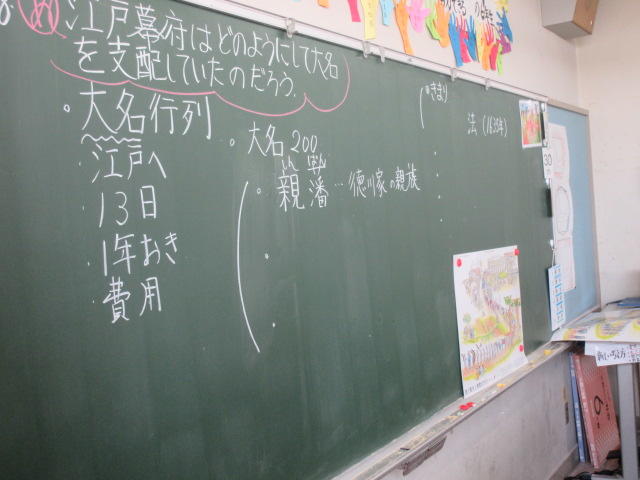 め
江戸幕府はどのようにして大名
を支配していたのだろう。
・大名行列
・江戸へ
・13日
・1年おき
・費用
・大名 200
しん ぱん
・親藩…徳川家の親族
・きまり
法(1635年)
30
6